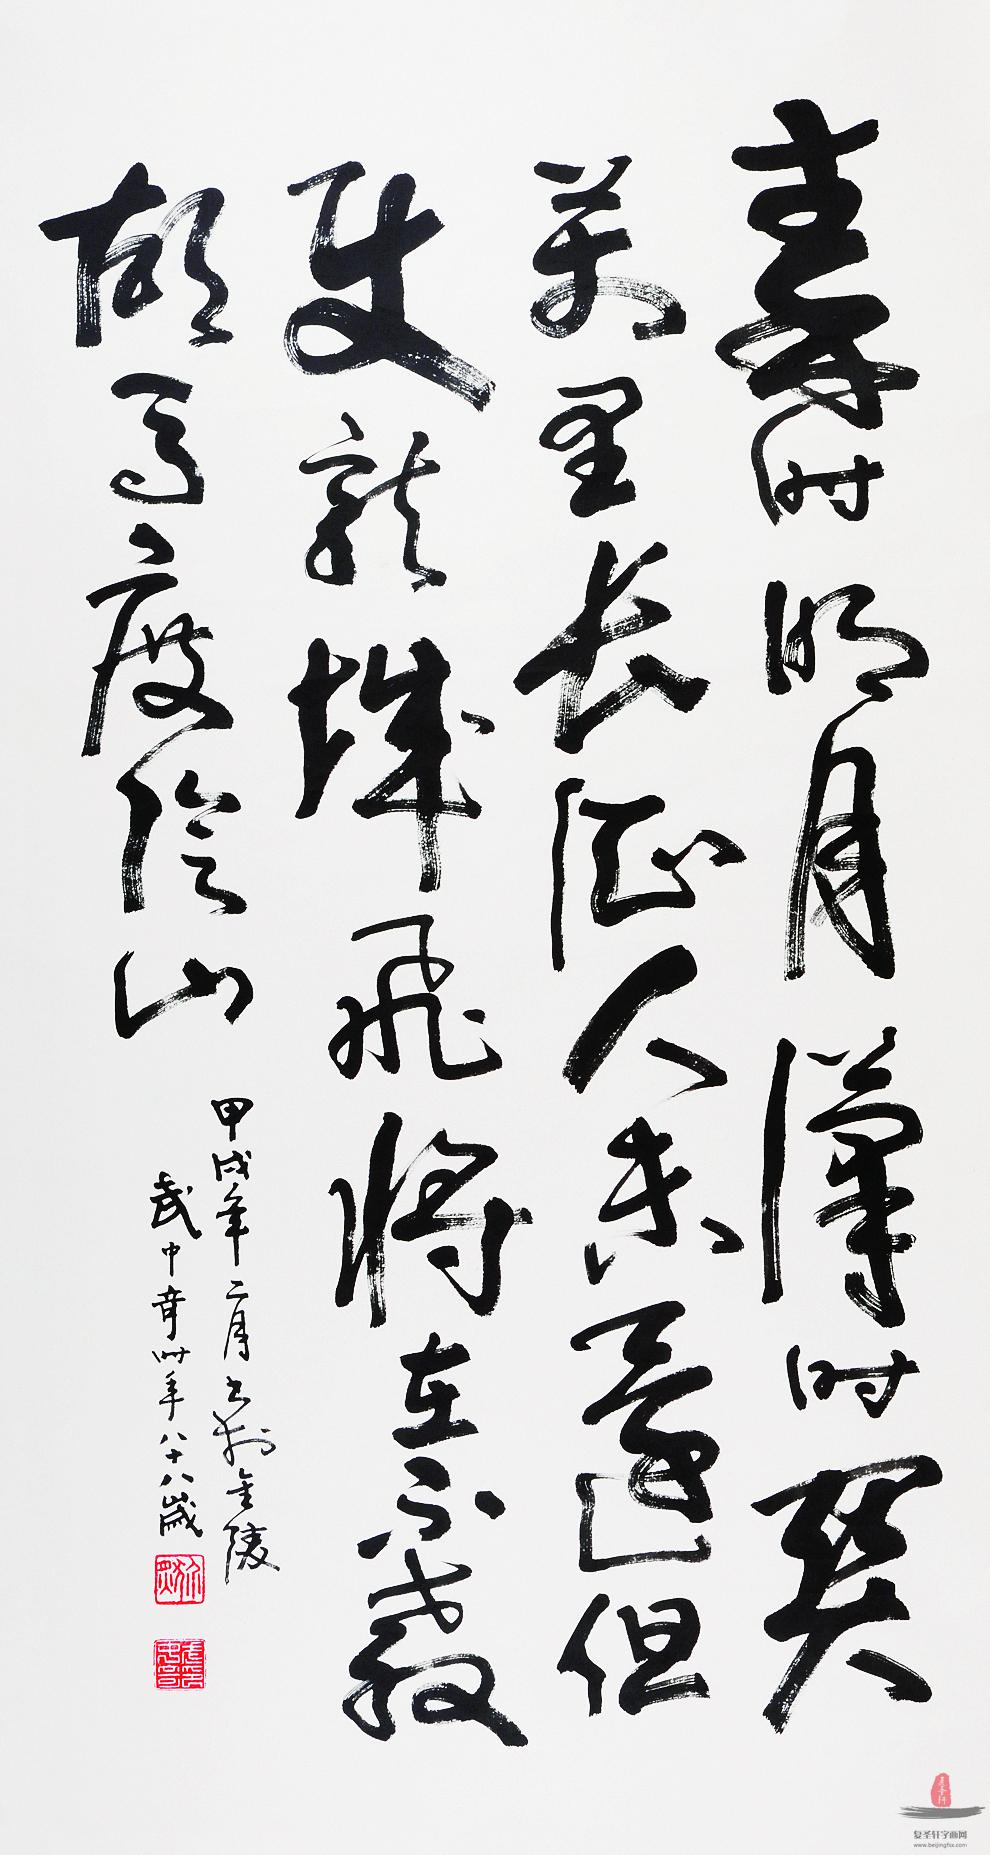 秦时明月漢时関
萬里长征人未還但
使龍城飛将在不教
胡马度陰山
甲戌年二月书於金陵
武中奇时年八十八歲
复圣轩字画网
www.beijingfsx.com